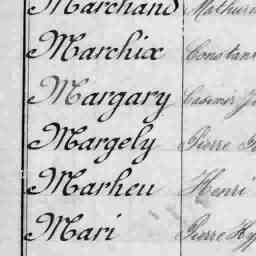 Marchand Mathuri
Marchix Constan
Margary Casimir
Margely Pierre
Marheu Henri
Mari Pierre Hy